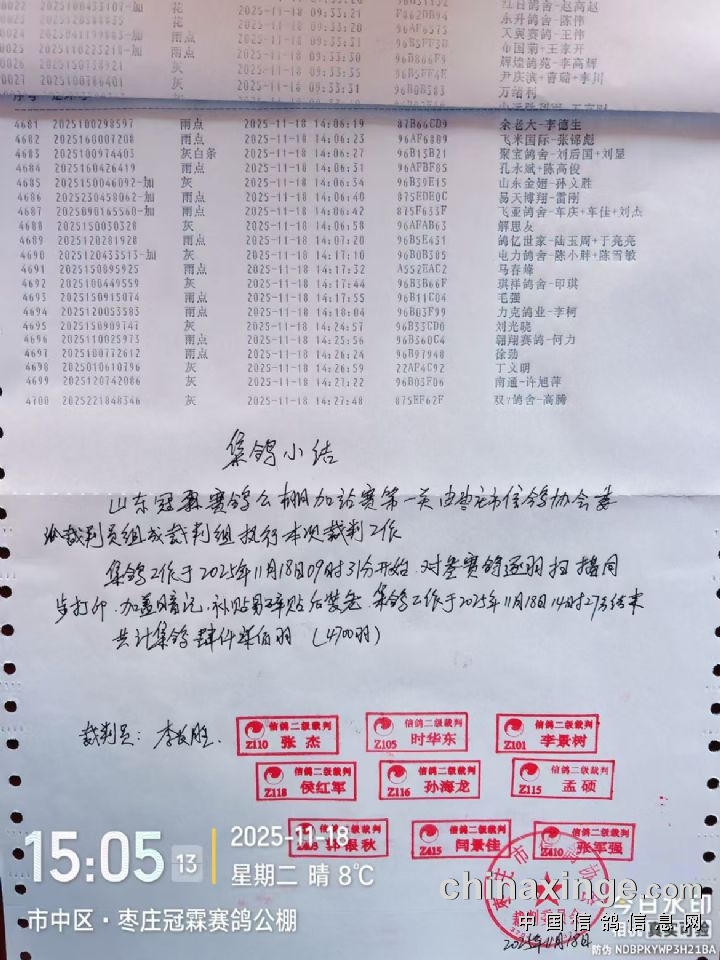 0022 2025100433107-加 花 2025-11-18 09:33:21 红日鸽舍-赵高超
花 2025-11-18 09:33:21 F862DB94 永升鸽舍-陈伟
雨点 2025-11-18 09:33:20 96AF6573 天翼赛鸽-王伟
2025110223218-加 雨点 2025-11-18 09:33:30 96B5FF3D 布国菊-王家开
0026 2025150738921 灰 2025-11-18 09:33:30 96B866F9 辉煌鸽苑-李高辉
0027 2025100786401 灰 2025-11-18 09:33:35 尹庆滨+曹璐+李川
万绪利
4681 2025100298597 雨点 2025-11-18 14:06:19 87B66CD9 余老大-李德生
4682 2025160007208 雨点 2025-11-18 14:06:23 96AF68D9 飞米国际-张锦彪
4683 2025100974403 灰白条 2025-11-18 14:06:27 96B13B21 聚宝鸽舍-刘启国+刘显
4684 2025160426419 雨点 2025-11-18 14:06:31 96AFBF85 孔永斌+陈高俊
4685 2025150046092-加 灰 2025-11-18 14:06:34 96B39E15 山东金翅-孙义胜
4686 2025230458062-加 雨点 2025-11-18 14:06:40 875EDE0C 易天博翔-雷刚
4687 2025090165560-加 雨点 2025-11-18 14:06:42 875F633F 飞亚鸽舍-车庆+车佳+刘杰
4688 2025150030328 灰 2025-11-18 14:06:58 96AFAB63 解思友
4689 2025120281928 雨点 2025-11-18 14:07:20 96B5E431 鸽亿世家-陆玉周+于亮亮
4690 2025120433513-加 灰 2025-11-18 14:17:10 96B0B305 电力鸽舍-陈小胖+陈雪敏
4691 2025150895925 雨点 2025-11-18 14:17:32 A552EAC2 马春峰
4692 2025100449559 灰 2025-11-18 14:17:44 96B3B66F 琪祥鸽舍-印琪
4693 2025150915074 雨点 2025-11-18 14:17:55 96B11C04 毛强
4694 2025120053583 雨点 2025-11-18 14:18:04 96B03F99 力克鸽业-李柯
4695 2025150909747 灰 2025-11-18 14:24:57 96B33CD0 刘光晓
4696 2025110025973 雨点 2025-11-18 14:25:56 96B360C4 翱翔赛鸽-何力
4697 2025100772612 雨点 2025-11-18 14:26:24 96B97948 徐勐
4698 2025010610796 灰 2025-11-18 14:26:59 22AF4C92 丁义明
4699 2025120742086 灰 2025-11-18 14:27:22 96B03F06 南通-许旭萍
4700 2025221848346 灰 2025-11-18 14:27:48 875EF62F 双Y鸽舍-高腾
集鸽小结
山东冠霖赛鸽公棚加站赛第一关由枣庄市信鸽协会委
派裁判员组成裁判组执行本次裁判工作
集鸽工作于2025年11月18日09时31分开始.对参赛鸽逐羽扫描同
步打印.加盖暗记.补贴易碎贴后装笼.集鸽工作于2025年11月18日14时27分结束
共计集鸽肆仟柒佰羽 (4700羽)
裁判长: 李长胜.
信鸽二级裁判 Z110 张杰
信鸽二级裁判 Z105 时华东
信鸽二级裁判 Z101 李景树
信鸽二级裁判 Z118 侯红军
信鸽二级裁判 Z116 孙海龙
信鸽二级裁判 Z115 孟硕
信鸽二级裁判 银秋
信鸽二级裁判 Z415 闫景佳
Z410 张军强
15:05 13
2025-11-18
星期二 晴 8℃
市中区·枣庄冠霖赛鸽公棚
chinaxinge.com
中国信鸽信息网
今日水印
相机 真实可验
防伪 NDBPKYWP3H21BA
2025年11月18日